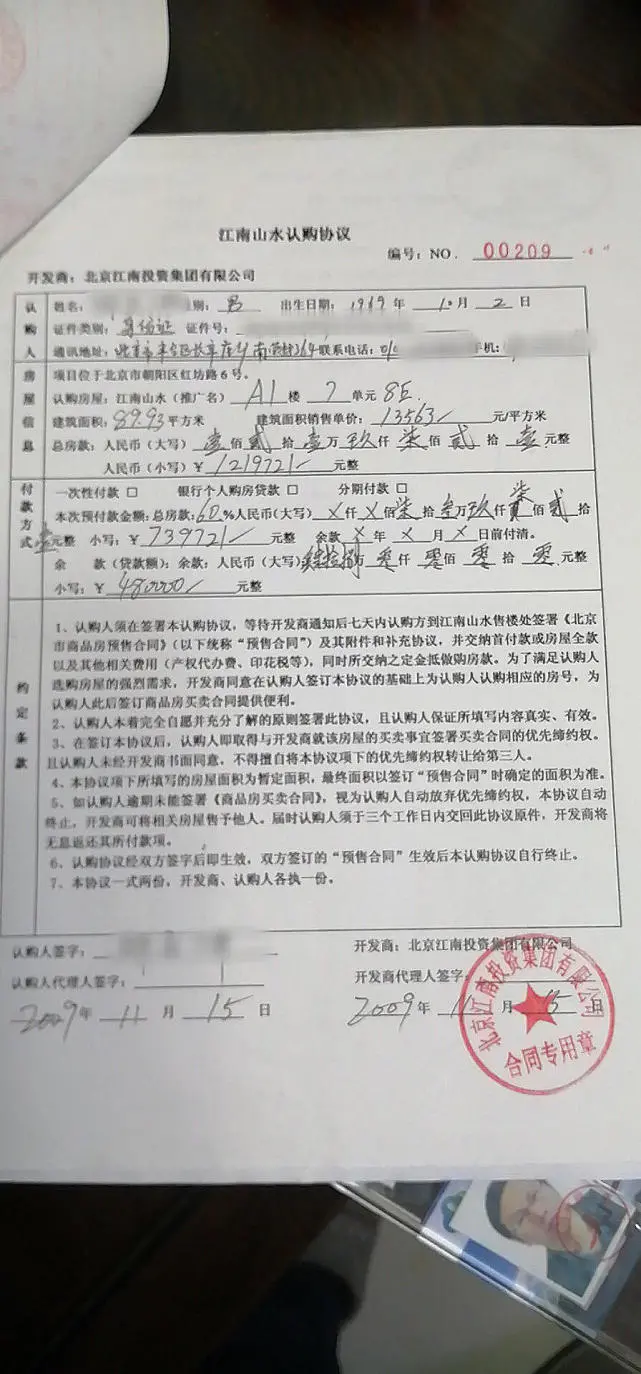 江南山水认购协议
编号：NO． 00209
开发商：北京江南投资集团有限公司
认购人
姓名： 别：男 出生日期：1969年10月2日
证件类别：身份证 证件号：
通讯地址：北京市丰台区长辛店 364 联系电话： 手机：
房屋信息
项目位于北京市朝阳区红坊路6号。
认购房屋：江南山水（推广名）A1楼 7单元 8E
建筑面积：89.93平方米 建筑面积销售单价：13563 元/平方米
总房款：人民币（大写）壹佰贰拾壹万玖仟柒佰贰拾壹元整
人民币（小写）￥1219721 元整
付款方式
一次性付款□ 银行个人购房贷款□ 分期付款□
本次预付款金额：总房款：60％人民币（大写）X仟X佰柒拾叁万玖仟柒佰贰拾
壹元整 小写：￥739721 元整 余款X年X月X日前付清。
余 款（贷款额）：余款：人民币（大写）肆拾捌万零仟零佰零拾零元整
小写：￥480000 元整
约定条款
1、认购人须在签署本认购协议，等待开发商通知后七天内认购方到江南山水售楼处签署《北京
市商品房预售合同》（以下统称“预售合同”）及其附件和补充协议，并交纳首付款或房屋全款
以及其他相关费用（产权代办费、印花税等），同时所交纳之定金抵做购房款。为了满足认购人
选购房屋的强烈需求，开发商同意在认购人签订本协议的基础上为认购人认购相应的房号，为
认购人此后签订商品房买卖合同提供便利。
2、认购人本着完全自愿并充分了解的原则签署此协议，且认购人保证所填写内容真实、有效。
3、在签订本协议后，认购人即取得与开发商就该房屋的买卖事宜签署买卖合同的优先缔约权。
且认购人未经开发商书面同意，不得擅自将本协议项下的优先缔约权转让给第三人。
4、本协议项下所填写的房屋面积为暂定面积，最终面积以签订“预售合同”时确定的面积为准。
5、如认购人逾期未能签署《商品房买卖合同》，视为认购人自动放弃优先缔约权，本协议自动
终止，开发商可将相关房屋售予他人。届时认购人须于三个工作日内交回此协议原件，开发商将
无息返还其所付款项。
6、认购协议经双方签字后即生效，双方签订的“预售合同”生效后本认购协议自行终止。
7、本协议一式两份，开发商、认购人各执一份。
认购人签字： 开发商：北京江南投资集团有限公司
认购人代理人签字： 开发商代理人签字：
2009年11月15日 2009年11月15日
北京江南投资集团有限公司
合同专用章